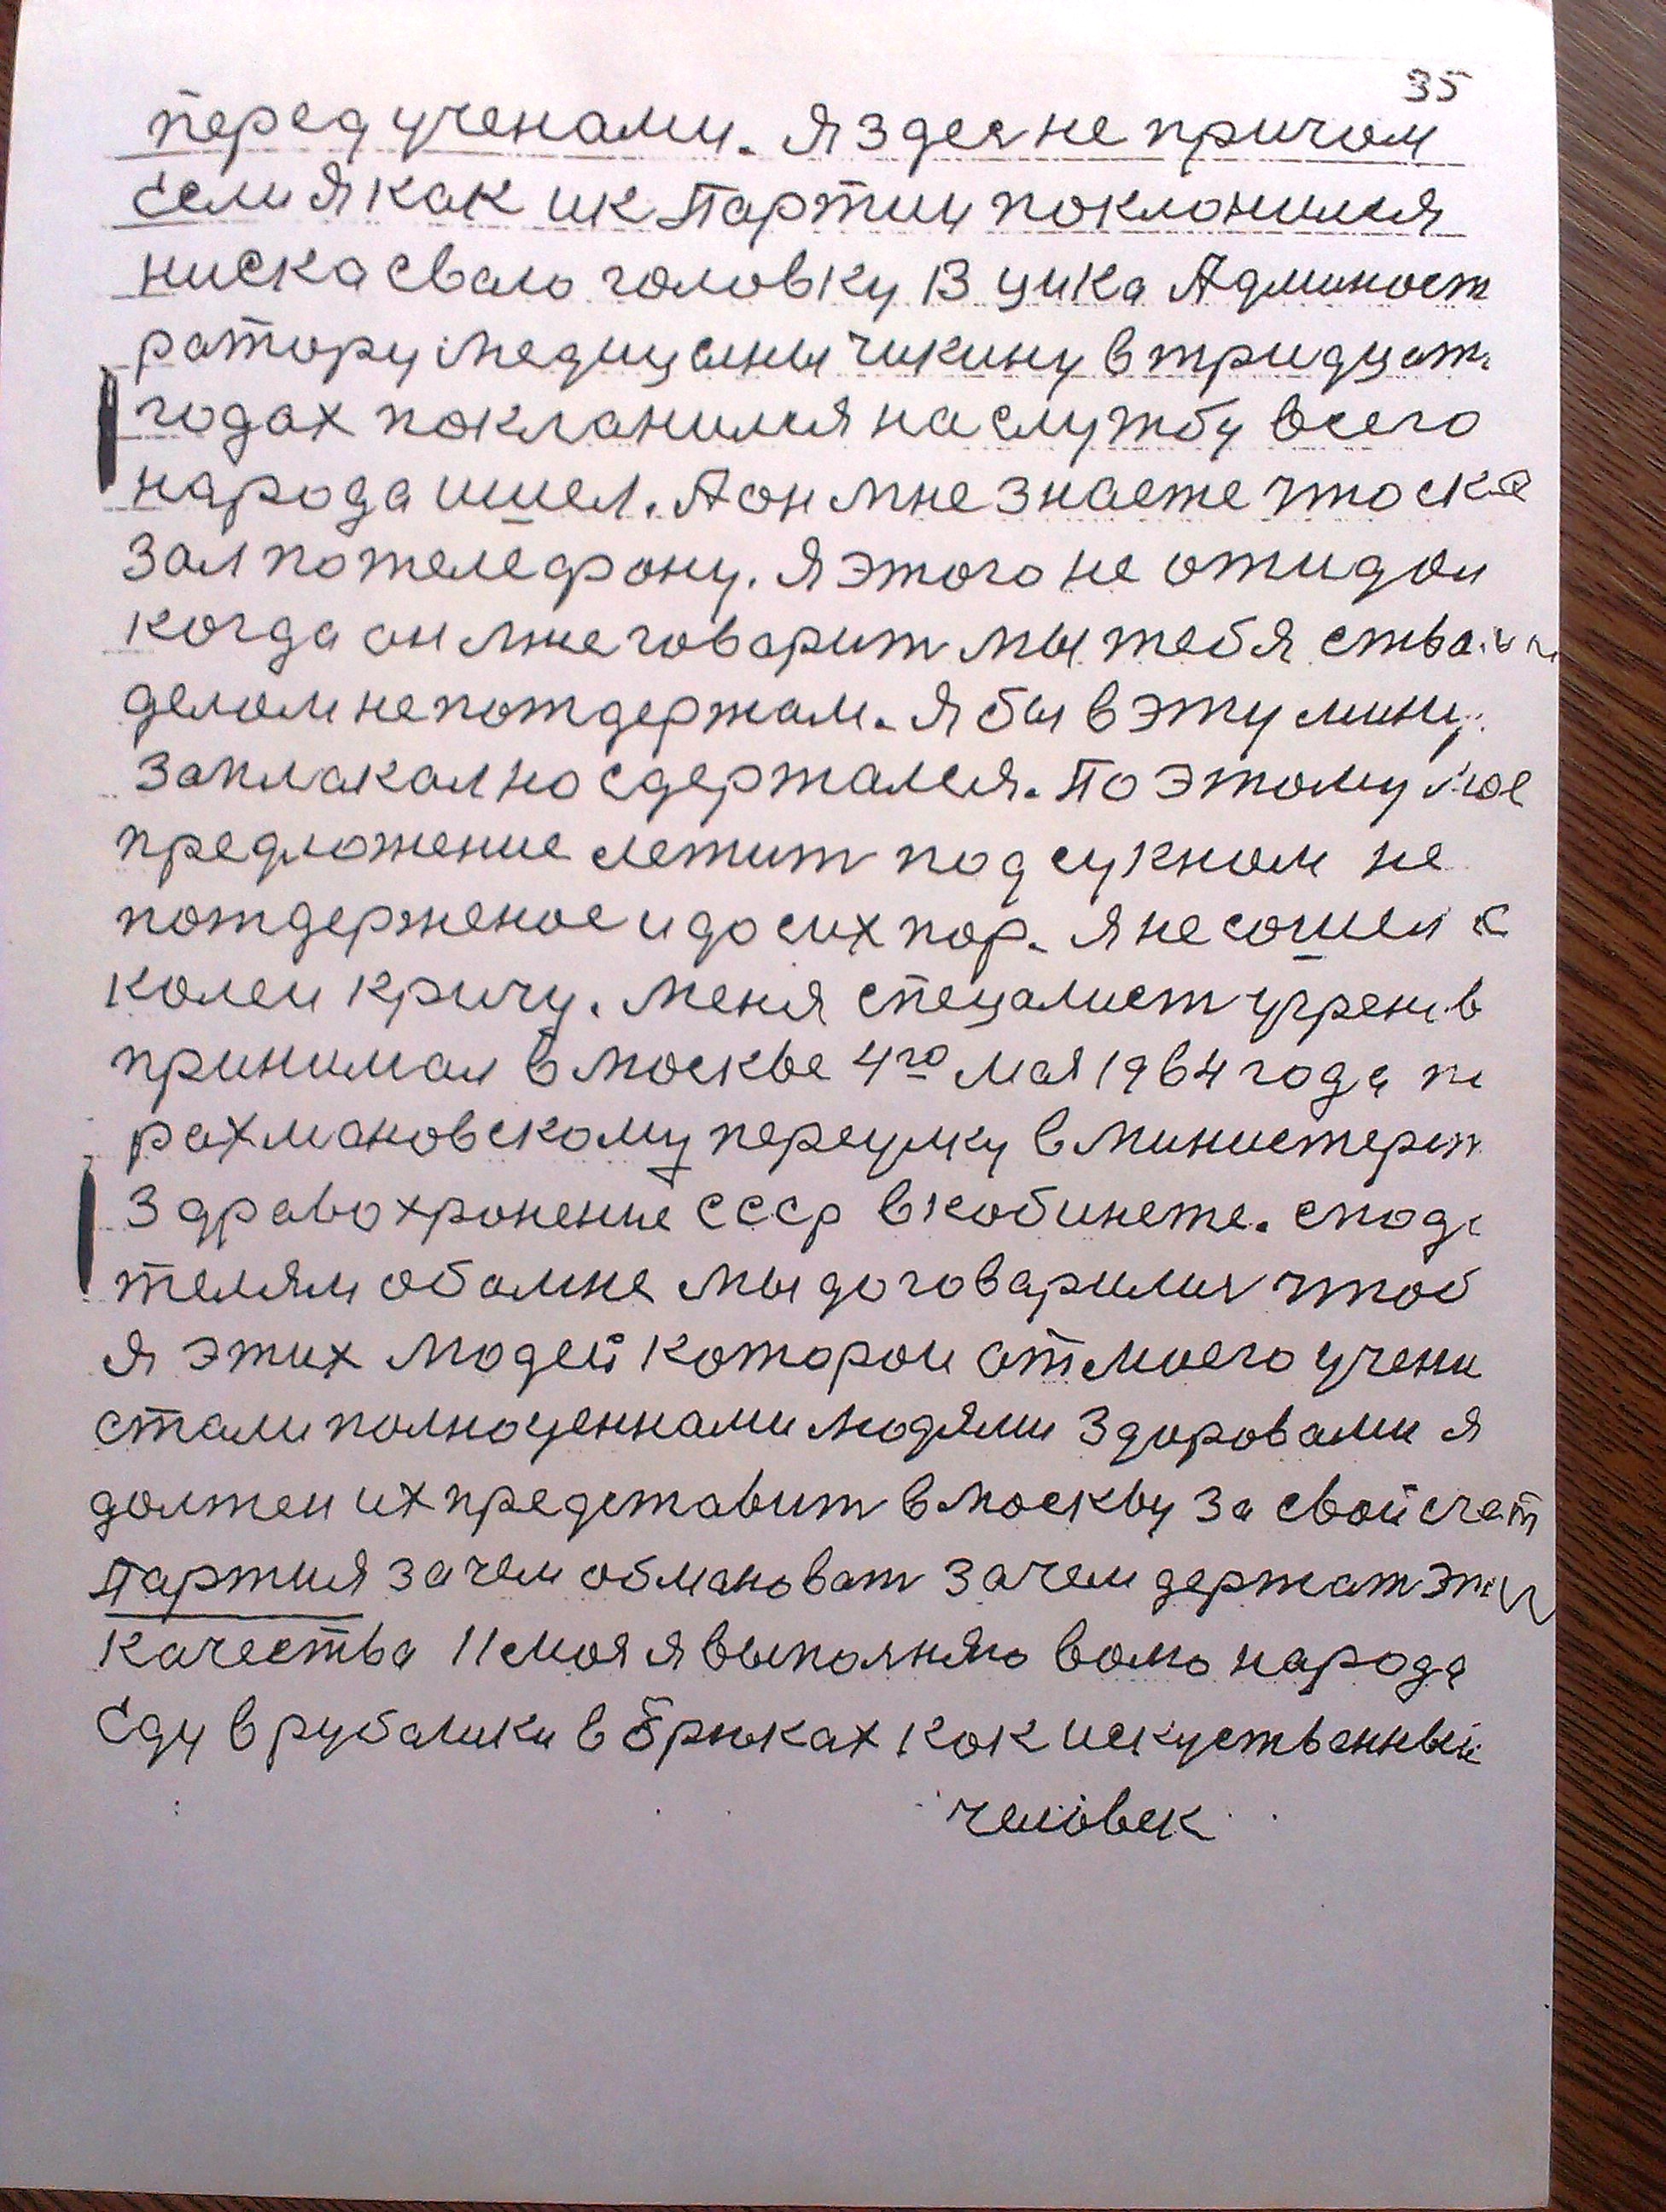 35
перед ученами. Я здея не причом
Если я как ик Партии поклонился
ниска сваю головку В цика Админост
ратору медицыны чикину в тридцат
годах покланился на службу всего
народа ишел. А он мне знаете что ска
зал по телефону. Я этого не ожидал
когда он мне говарит мы тебя
делом непотдержам. Я бы в эту
заплакал но сдержался. По этому мое
предложение лежит под сукном не
потдерженое и до сих пор. Я не сошел с
колеи кричу. Меня спецалист
принимал в москве 4го мая 1964 года
рахмановскому переулку в министерст
Здравохронение СССР в кобинете.
телям обамне мы договарилия чтоб
я этих людей котороы от моего учени
стали полноценнами людями здоровами я
должен их представит в москву за свой счет
Партия зачем обмановат зачем держат
качества И моя я выполняю волю народа
Еду в рубалики в брюках как искуственный
человек